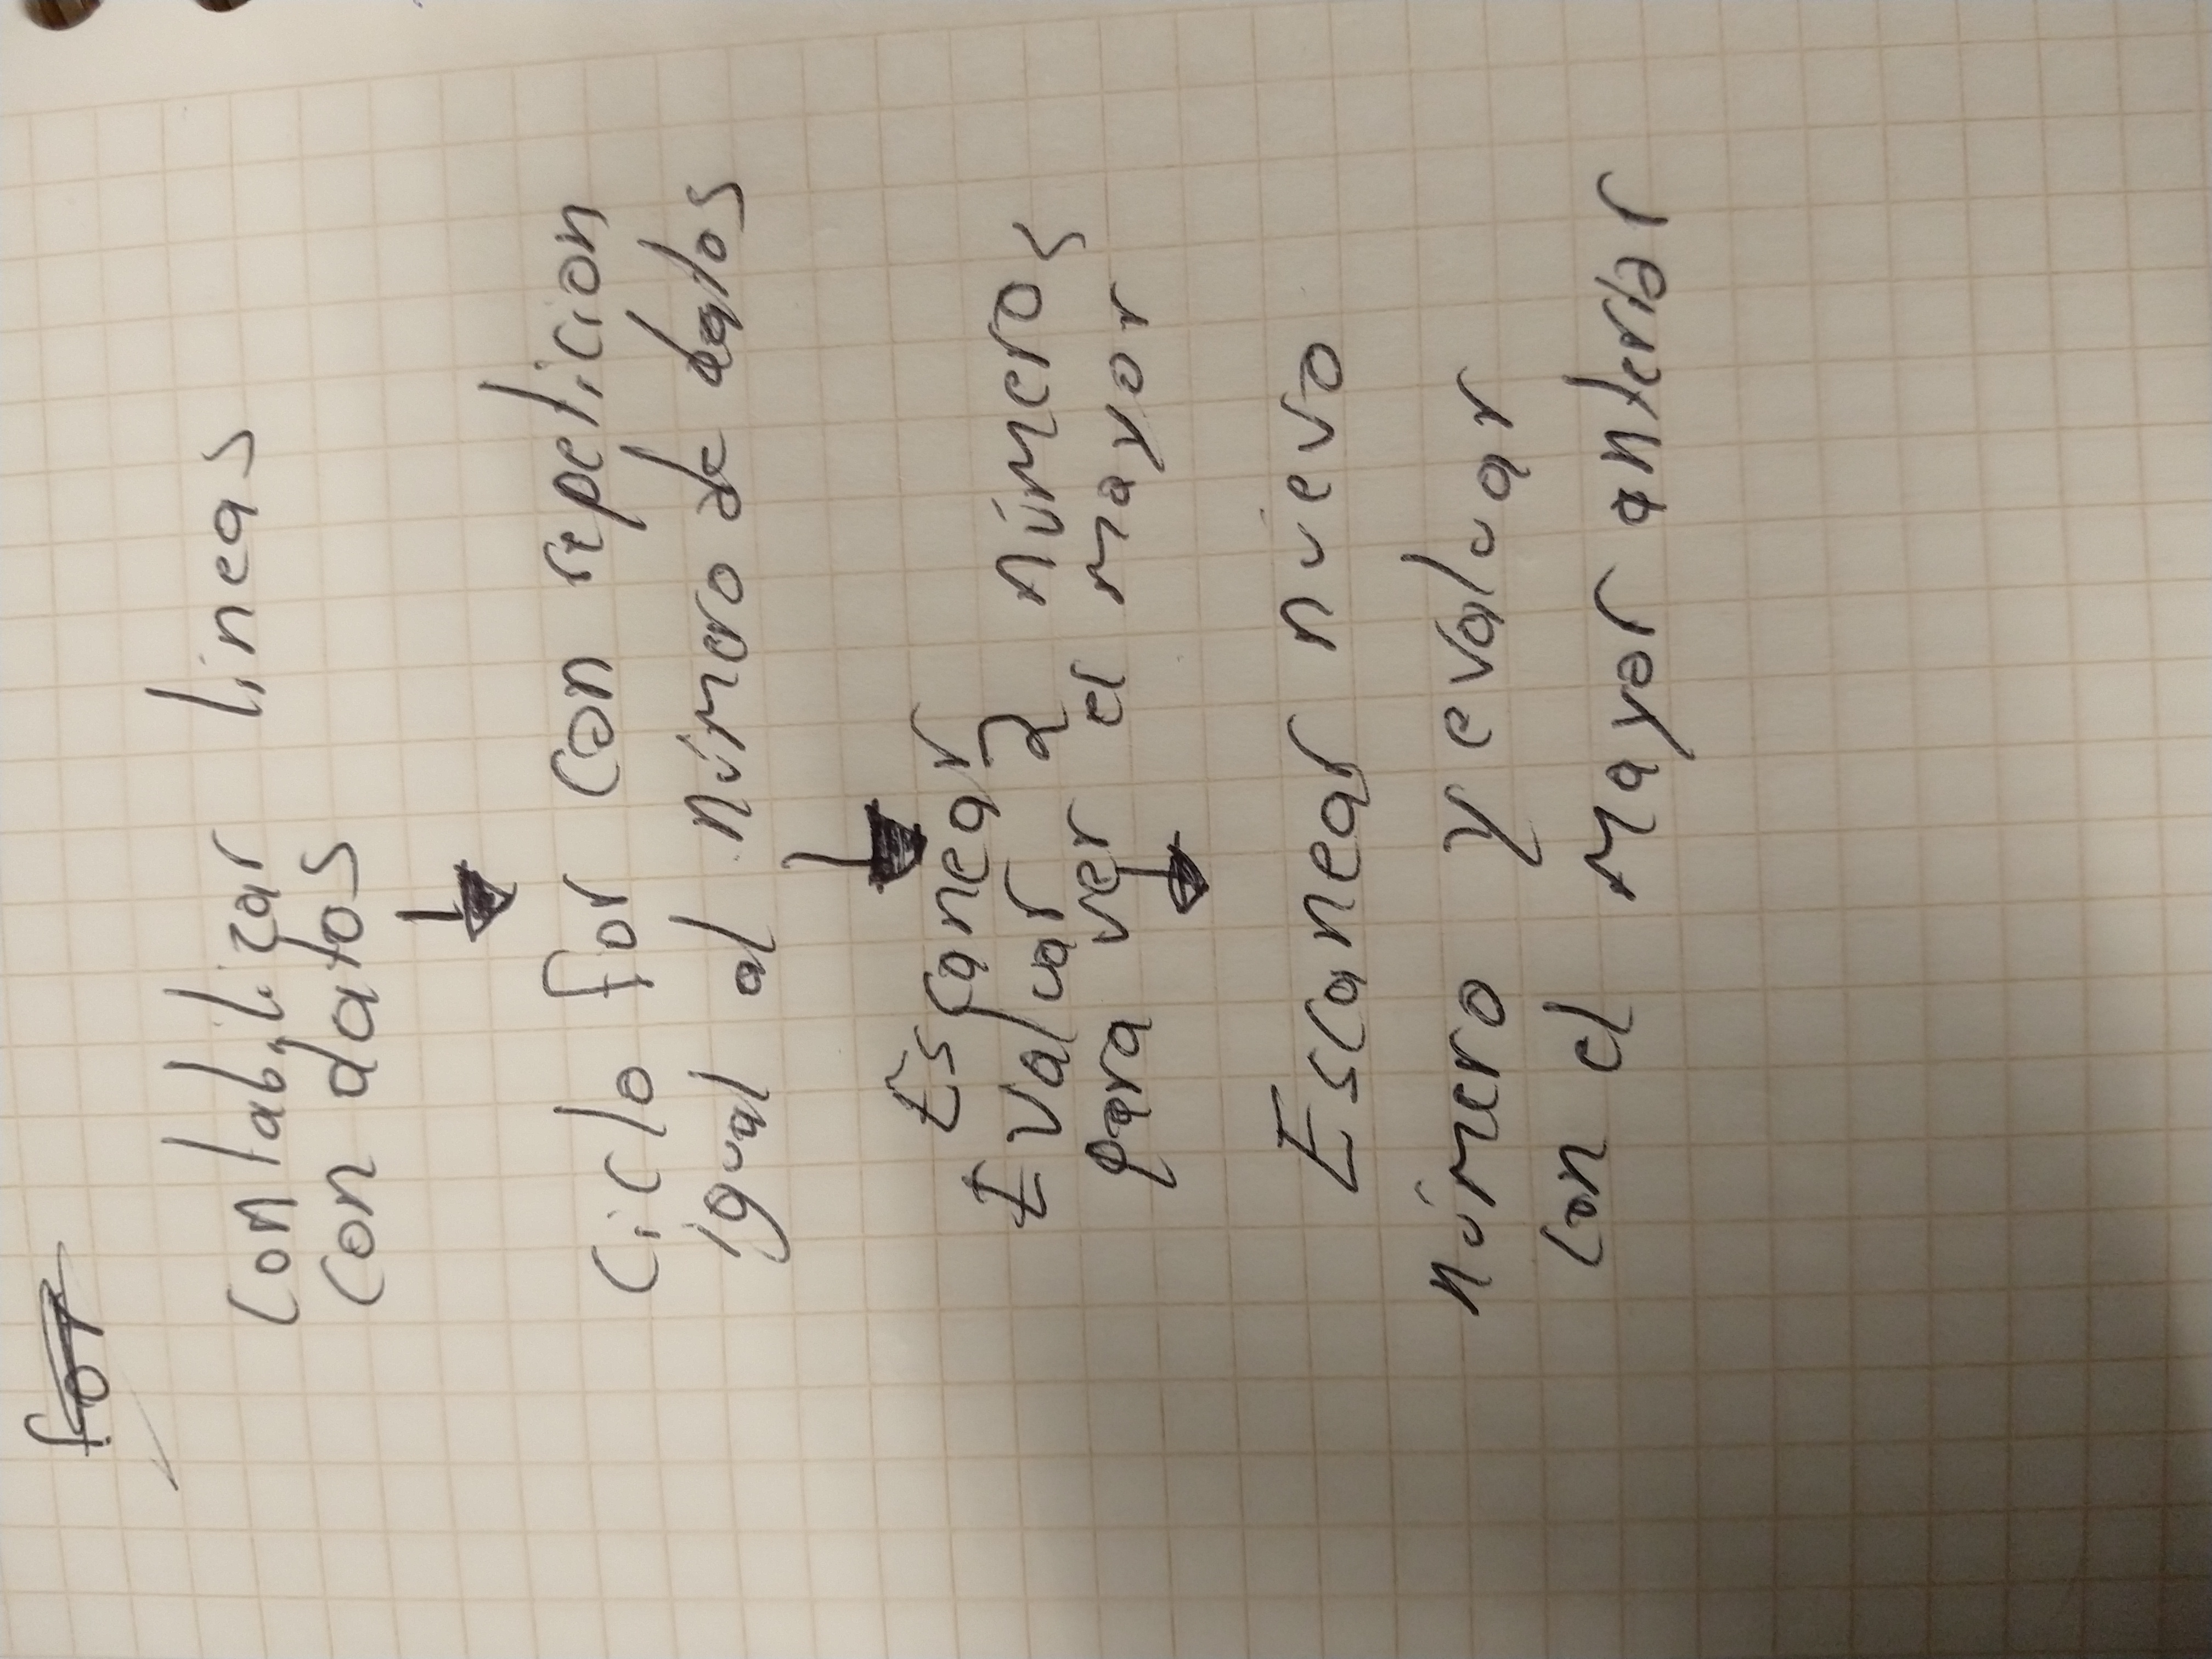 for
contabilizar lineas
con datos
ciclo for con repeticion
igual al número de datos
Escanear
Evaluar 2 números
para ver el mayor
Escanear nuevo
número y evaluar
con el mayor anterior